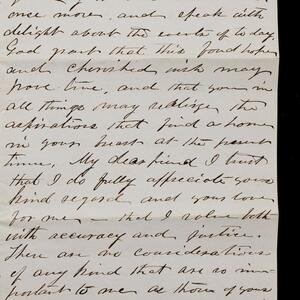 once more, and speak with
delight about the events of to day.
God grant that this fond hope
and cherished wish may
prove true, and that you in
all things may realize the
aspirations that find a home
in your breast at the present
time. My dear friend I trust
that I do fully appreciate your
kind regard and your love
for me — that I value both
with accuracy and justice.
There are no considerations
of any kind that are so im-
portant to me as those of your